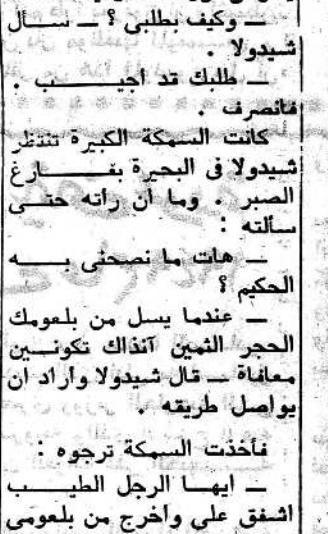 ــ وكيف بطلبى ؟ ــ ســأل
شيدولا .
ــ طلبك قد اجيــــب .
فانصرف .
كانت السمكة الكبيرة تنتظر
شيدولا فى البحيرة بفــــارغ
الصبر . وما ان رأته حتــى
سألته :
ــ هات ما نصحنى بــــه
الحكيم ؟
ــ عندما يسل من بلعومك
الحجر الثمين آنذاك تكونــين
معافاة ــ قال شيدولا وأراد ان
يواصل طريقه .
فأخذت السمكة ترجوه :
ــ ايهــا الرجل الطيــــب
اشفق على وأخرج من بلعومى